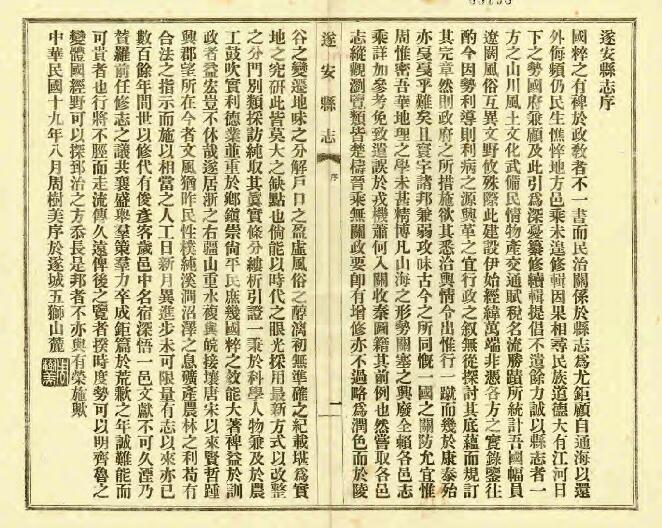 遂安縣志序
國粹之有裨於政教者不一書而民治關係於縣志為尤鉅顧自通海以還
外侮頻仍民生憔悴地方邑乘未遑修輯因果相尋民族道德大有江河日
下之勢國府兼顧及此引為深憂纂修續輯提倡不遺餘力誠以縣志者一
方之山川風土文化武備民情物產交通賦稅名流勝蹟所統計吾國幅員
遼闊風俗互異文野攸殊際此建設伊始經緯萬端非憑各方之實錄鑒往
酌今因勢利導則利病之源興革之宜行政之敘無從探討其底蘊而規訂
其完章然則政府之所措施欲其悉洽輿情令出惟行一蹴而幾於康泰殆
亦戛戛乎難矣且寰宇諸邦兼弱攻昧古今之所同慨一國之關防尤宜惟
周惟密吾華地理之學未甚精博凡山海之形勢關塞之興廢全賴各邑志
乘詳加參考免致遺誤於戎機蕭何入關收秦圖籍其前例也然嘗取各邑
志縱觀瀏覽類皆楚檮晉乘無關政要即有增修亦不過略為潤色而於陵
遂安縣志
序
一
谷之變遷地味之分解戶口之盈虛風俗之醇漓初無準確之紀載堪為實
地之究研此皆莫大之缺點也倘能以時代之眼光採用最新方式以改整
之分門別類採訪純取其真實條分縷析引證一秉於科學人物兼及於農
工鼓吹實利德業並重於鄉鎮崇尚平民庶幾國粹之教能大著裨益於訓
政者益宏豈不休哉遂居浙之右疆山重水複與皖接壤唐宋以來賢哲踵
興郡望所在今者文風猶昨民性樸純溪澗沼澤之息礦產農林之利苟有
合法之指示而施以相當之人工日新月異進步未可限量有志以來亦已
數百餘年間世以修代有俊彥客歲邑中名宿深悟一邑文獻不可久湮乃
贊羅前任修志之議共襄盛舉羣策羣力卒成鉅篇於荒歉之年誠難能而
可貴者也行將不脛而走流傳久遠俾後之覽者揆時度勢可以明齊魯之
變體國經野可以探郅治之方忝長是邦者不亦與有榮施歟
中華民國十九年八月周樹美序於遂城五獅山麓